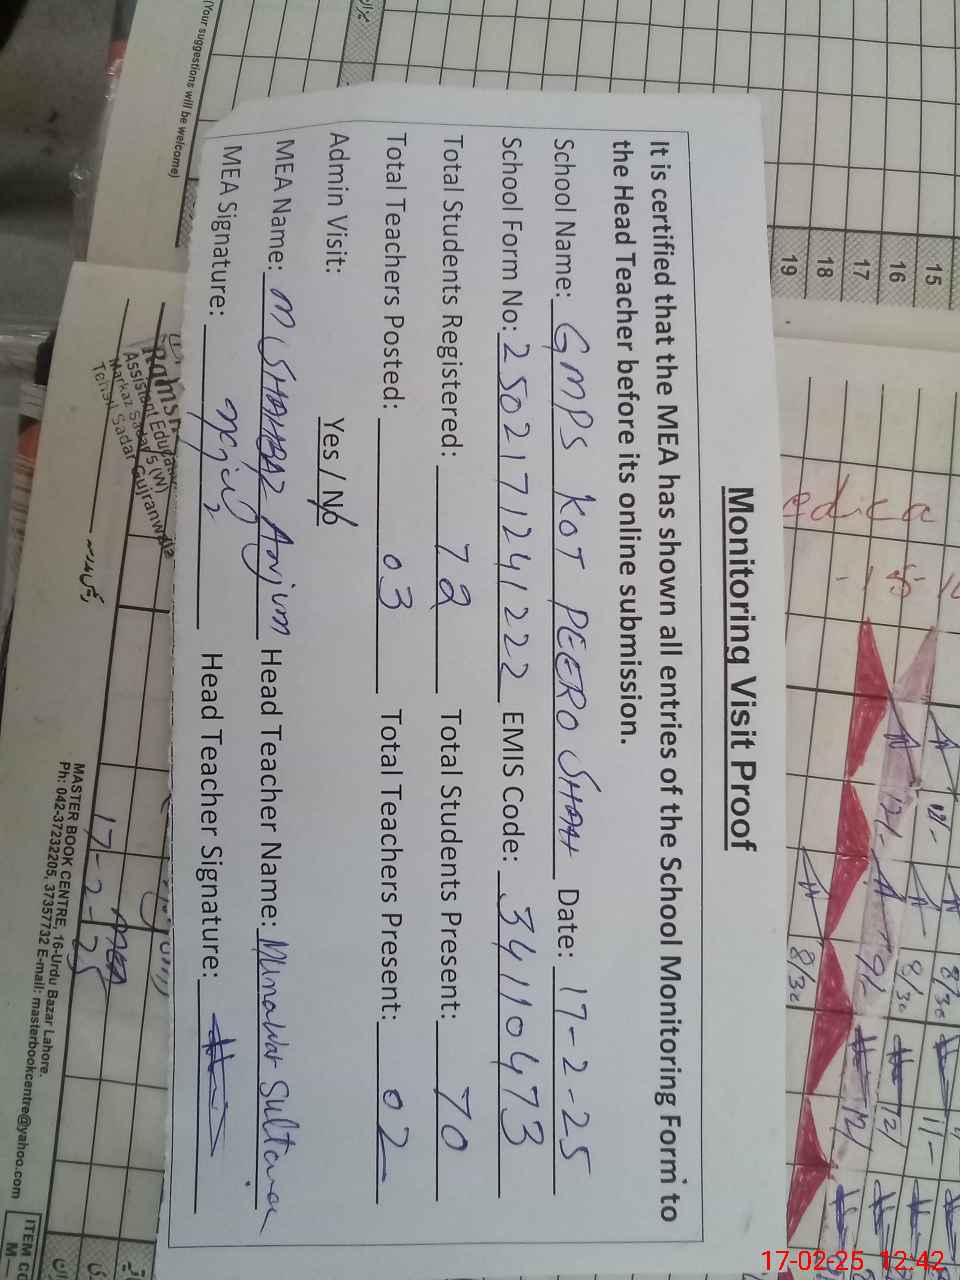 Monitoring Visit Proof
It is certified that the MEA has shown all entries of the School Monitoring Form to
the Head Teacher before its online submission.
School Name: GMPS KOT PEERO SHAH Date: 17-2-25
School Form No: 2502171241222 EMIS Code: 34110473
Total Students Registered: 72 Total Students Present: 70
Total Teachers Posted: 03 Total Teachers Present: 02
Admin Visit: Yes / No
MEA Name: M SHAHBAZ Anjum Head Teacher Name: Munawar Sultana
MEA Signature: Head Teacher Signature:
(Your suggestions will be welcome)
15
16
17
18
19
edica
8/30
8/30
8/30
11/-
12/
12/
9/-
Assistant Educa
Markaz Sadar 5 (W)
Tehsil Sadar Gujranwala
MEA
17-2-25
MASTER BOOK CENTRE, 16-Urdu Bazar Lahore.
Ph: 042-37232205, 37357732 E-mail: masterbookcentre@yahoo.com
ITEM CO
M
17-02-25 12:42